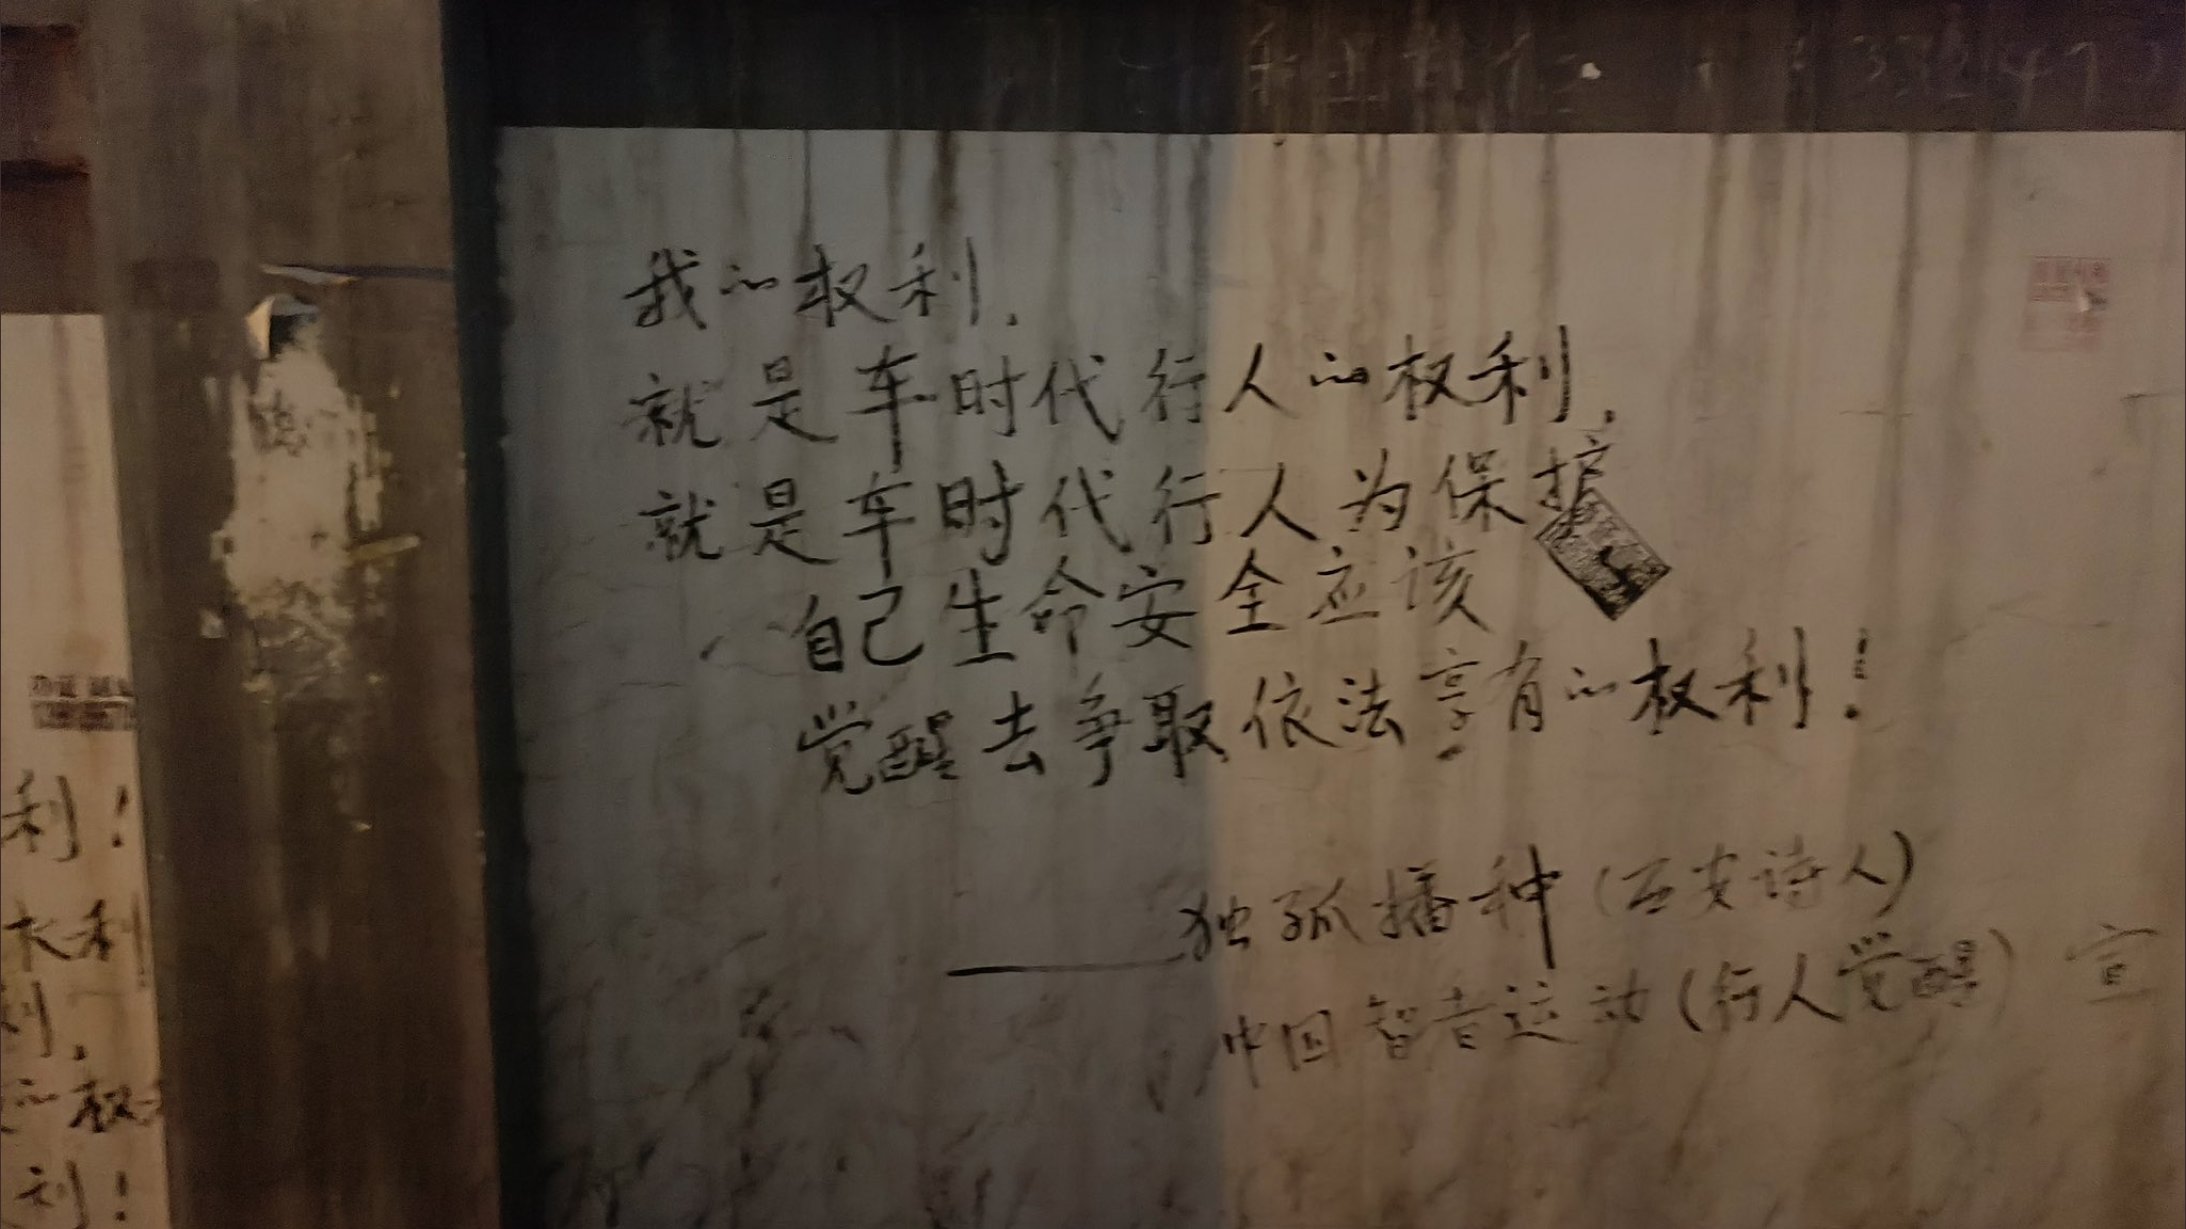 我的权利.
就是车时代行人的权利.
就是车时代行人为保护
自己生命安全应该
觉醒去争取依法享有的权利!
——独孤播种(西安诗人)
中国智者运动(行人觉醒) 宣
利!
利
利.
的权
利!